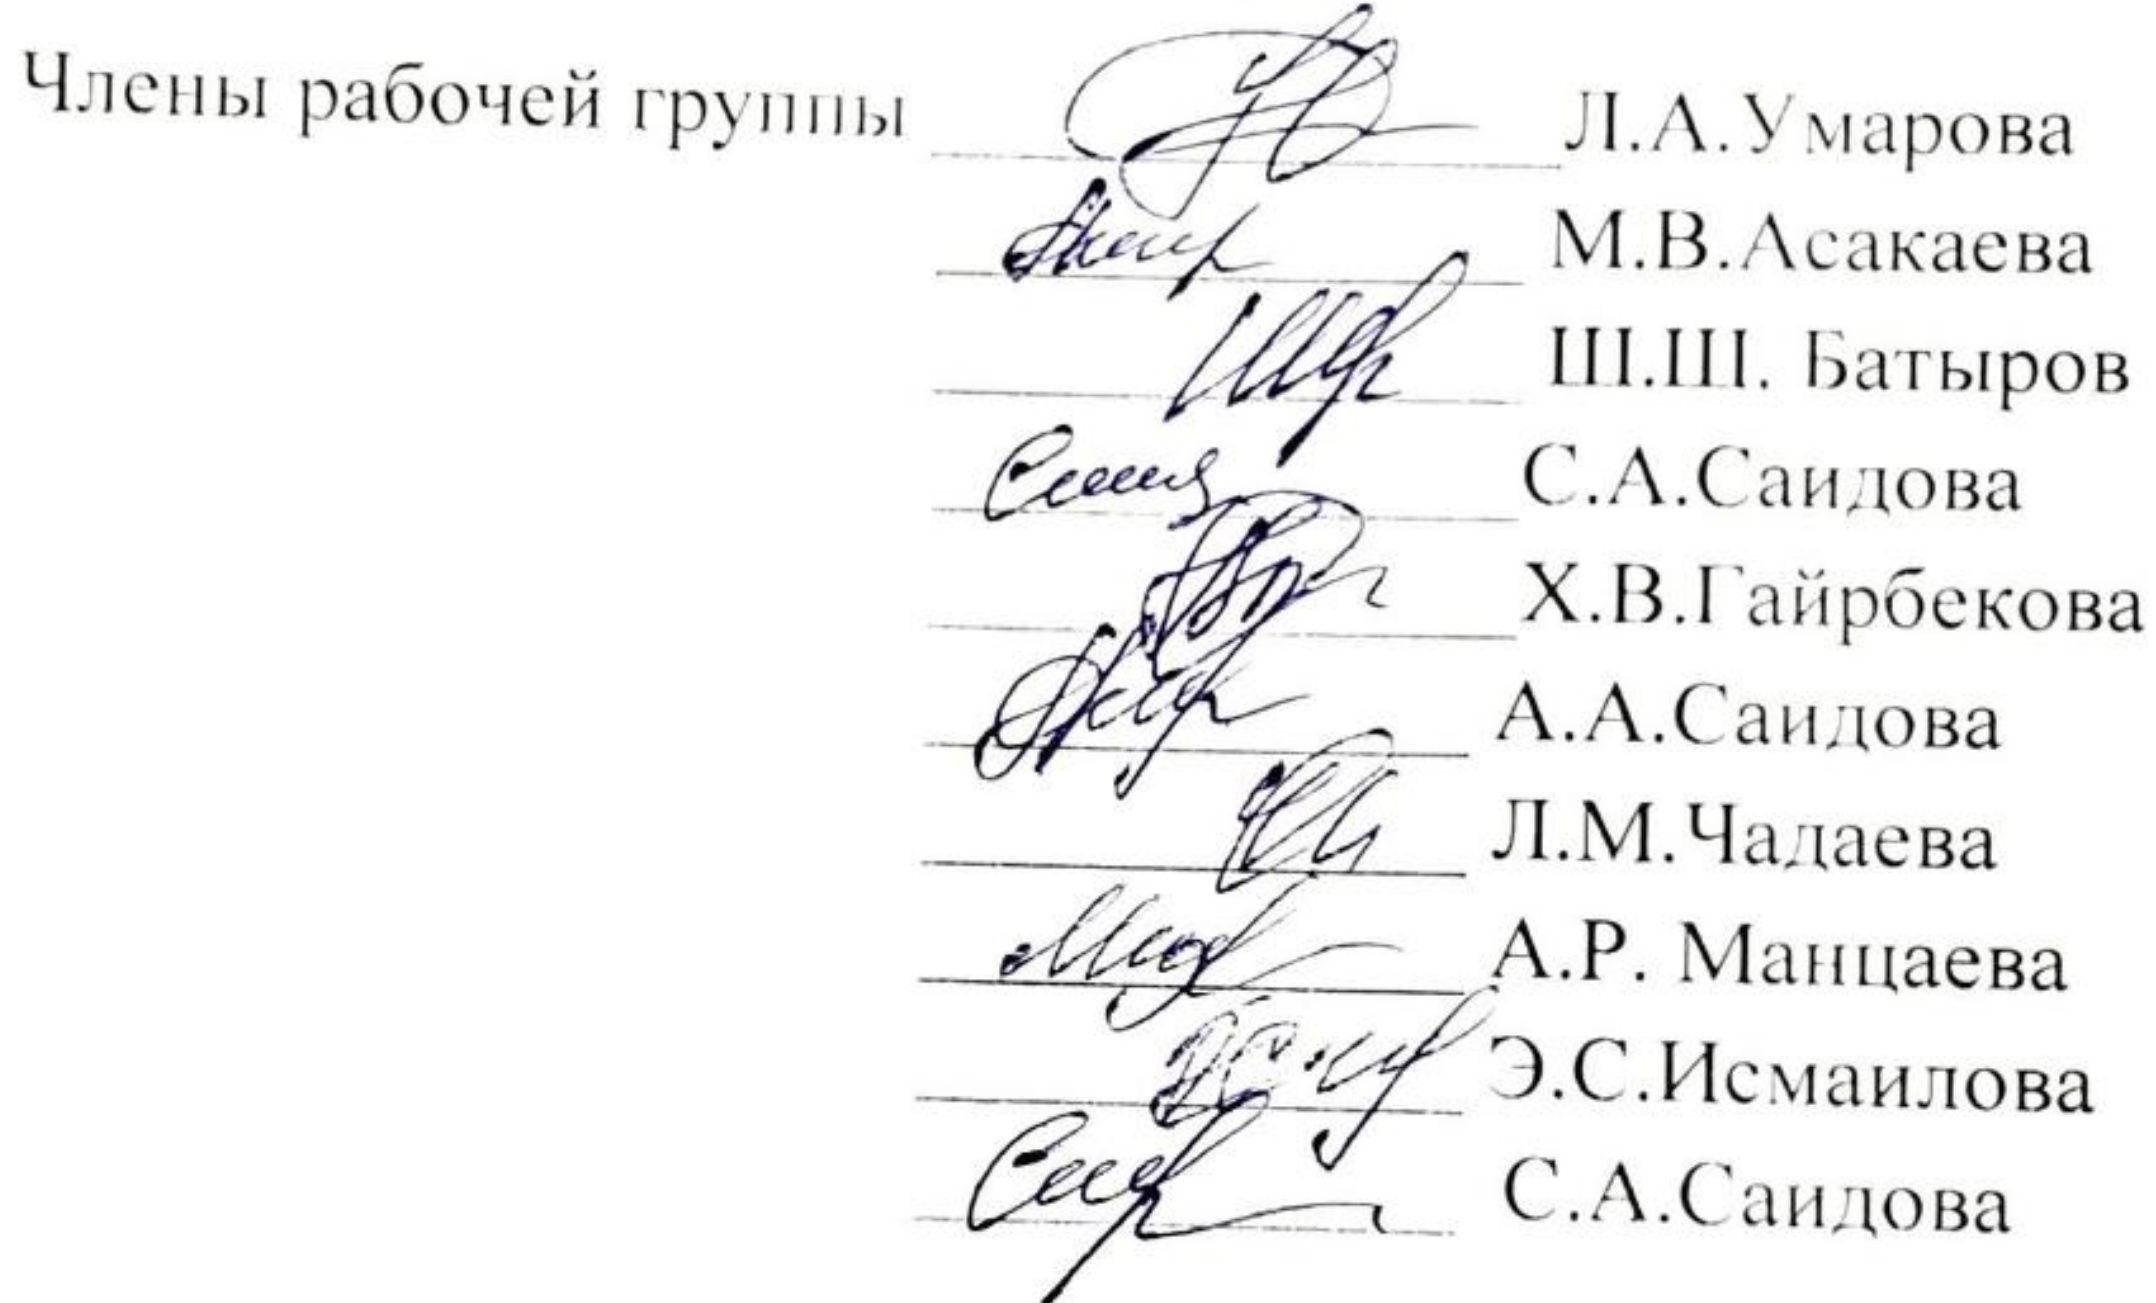 Члены рабочей группы Л.А.Умарова
М.В.Асакаева
Ш.Ш. Батыров
С.А.Саидова
Х.В.Гайрбекова
А.А.Саидова
Л.М.Чадаева
А.Р. Манцаева
Э.С.Исмаилова
С.А.Саидова